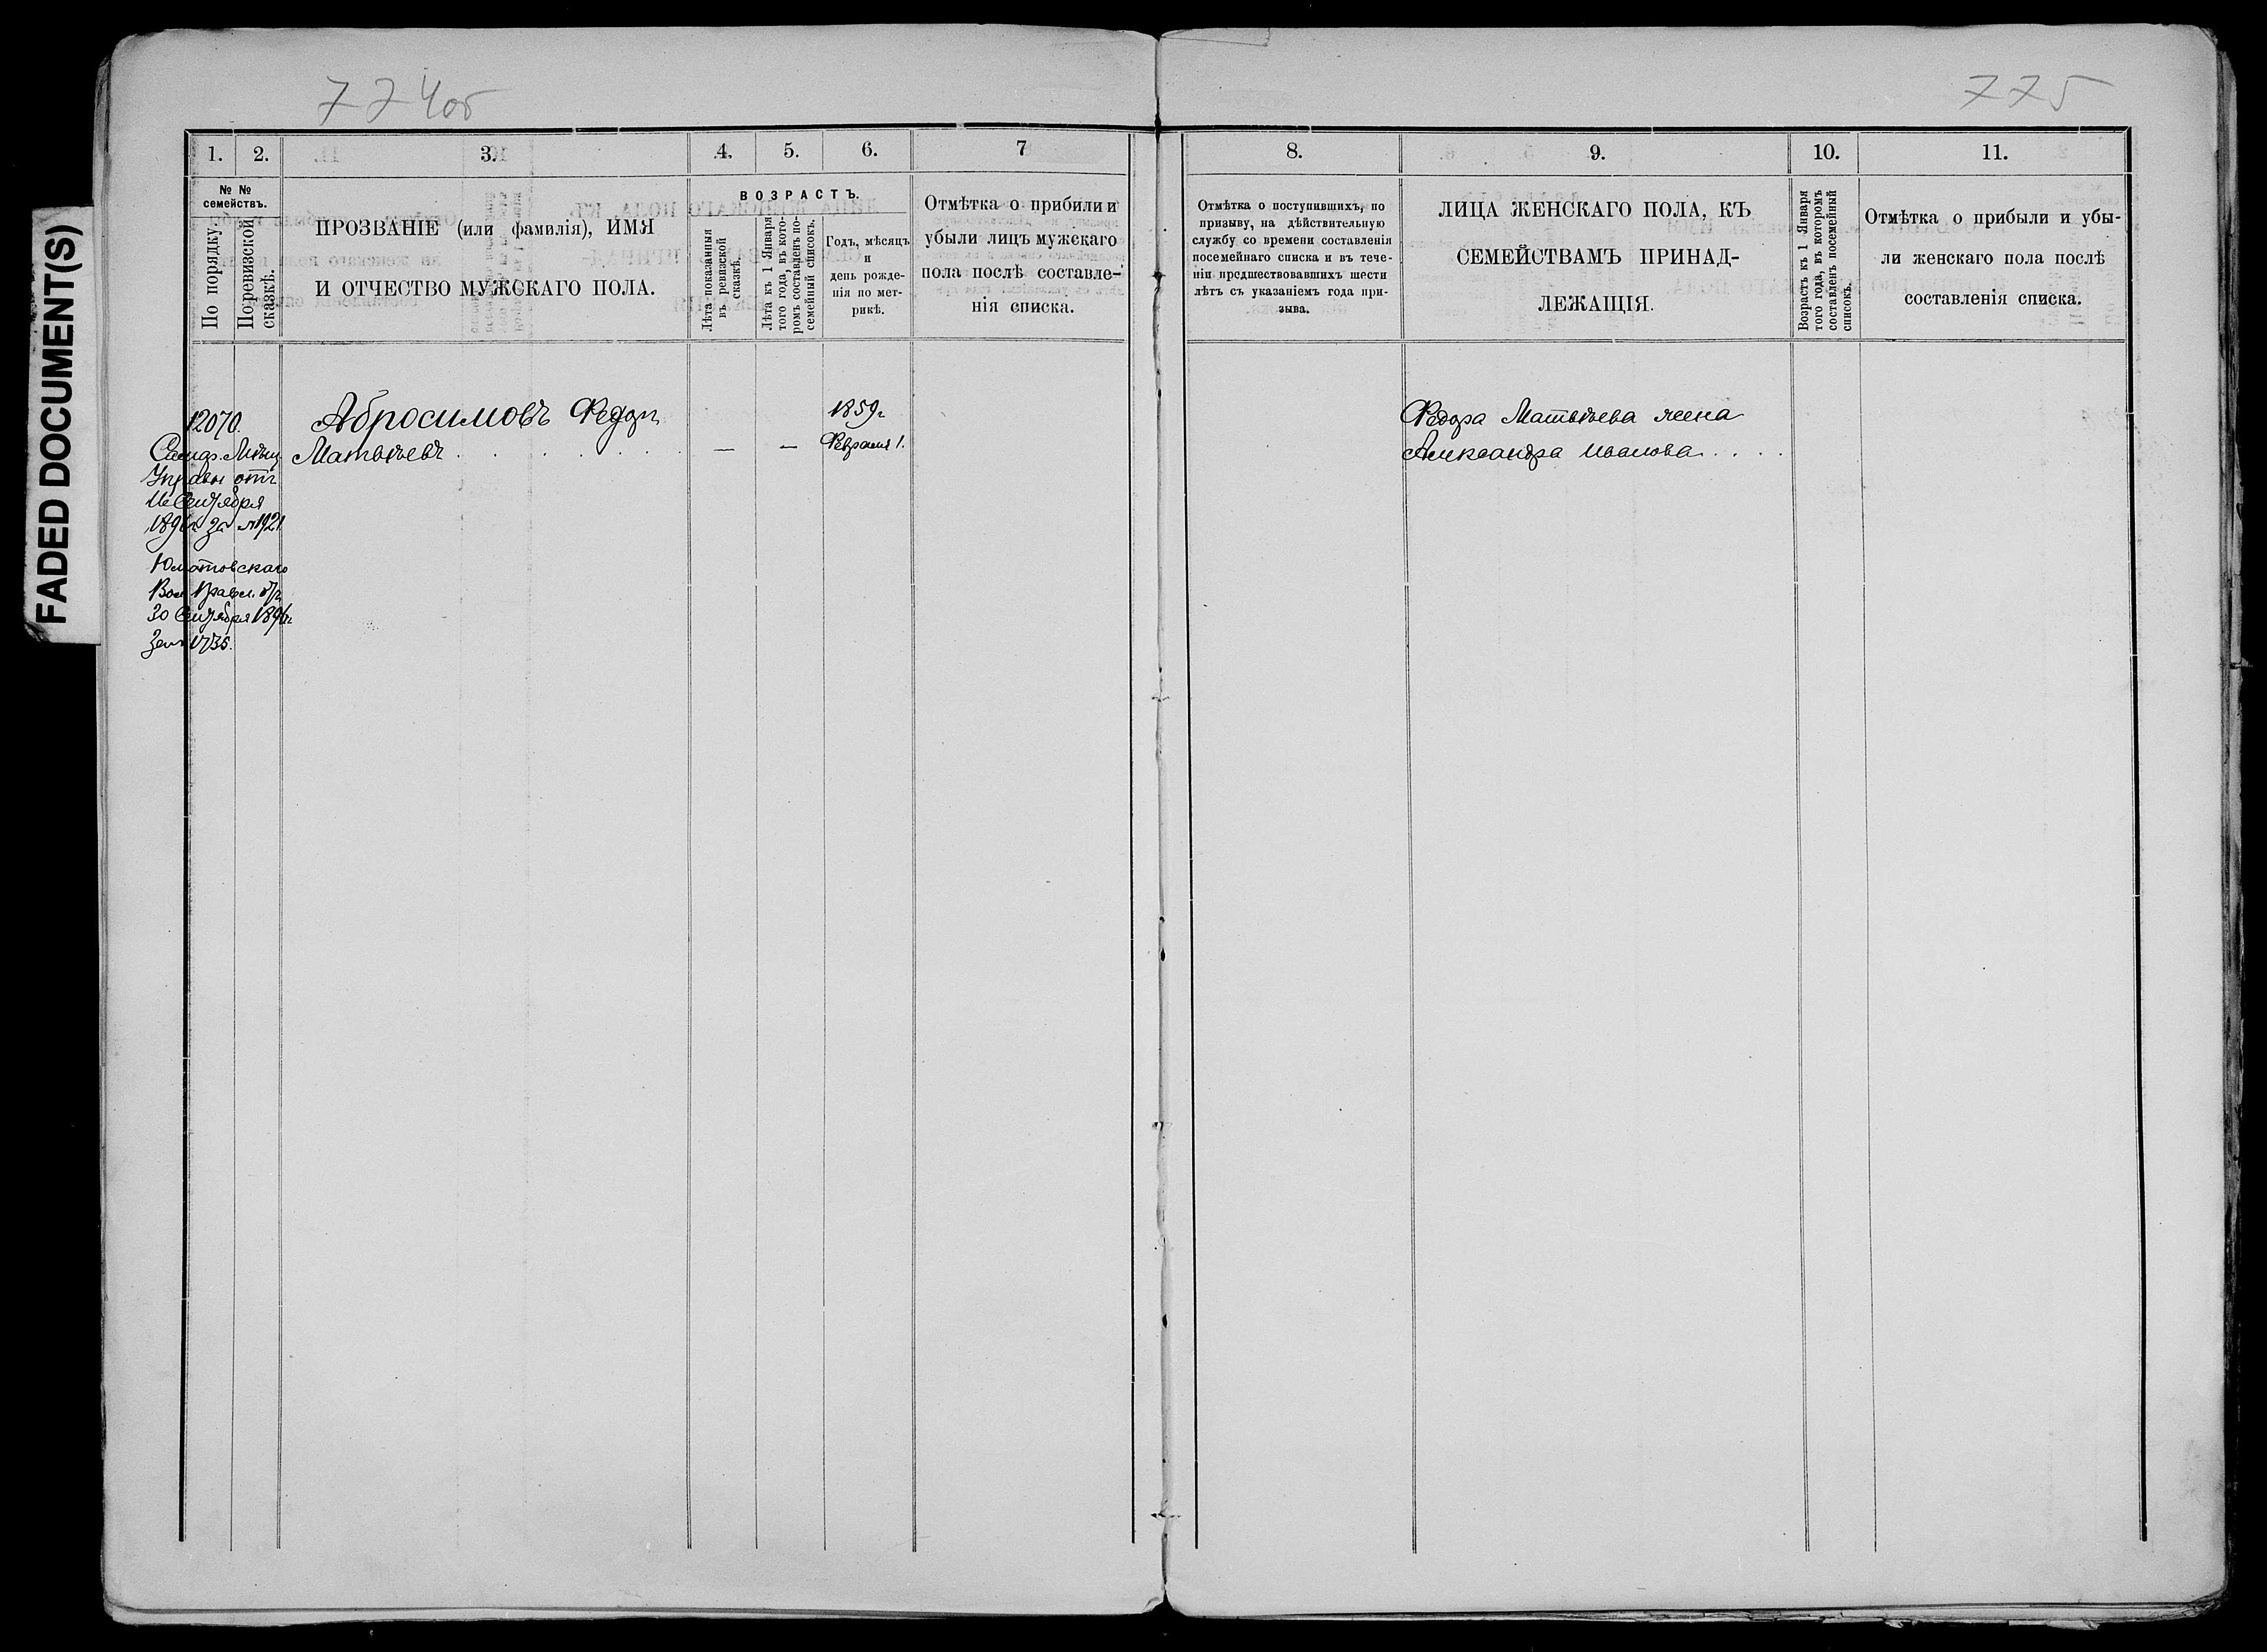 FADED DOCUMENT(S)
774об
775
1.
2.
3.
4.
5.
6.
7
№ №
семействъ.
По порядку.
По ревизской
сказкѣ.
ПРОЗВАНІЕ (или фамилія), ИМЯ
И ОТЧЕСТВО МУЖСКАГО ПОЛА.
ВОЗРАСТЪ.
Лѣта показанныя
въ ревизской
сказкѣ.
Лѣта къ 1 Января
того года, въ кото-
ромъ составленъ по-
семейный списокъ.
Годъ, мѣсяцъ
и
день рожде-
нія по мет-
рикѣ.
Отмѣтка о прибили и
убыли лицъ мужскаго
пола послѣ составле-
нія списка.
12070.
Абросимовъ Федоръ
Матвѣевъ . . . . . . .
—
—
1859г
Февраля 1.
Самар. Мѣщ.
Управы отъ
16 Сентября
1896г за №1921
Юматовскаго
Вол. Правл. отъ
30 Сентября 1896г
за № 1735.
8.
9.
10.
11.
Отмѣтка о поступившихъ, по
призыву, на дѣйствительную
службу со времени составленія
посемейнаго списка и въ тече-
ніи предшествовавшихъ шести
лѣтъ съ указаніемъ года при-
зыва.
ЛИЦА ЖЕНСКАГО ПОЛА, КЪ
СЕМЕЙСТВАМЪ ПРИНАД-
ЛЕЖАЩІЯ.
Возрастъ къ 1 Января
того года, въ которомъ
составленъ посемейный
списокъ.
Отмѣтка о прибыли и убы-
ли женскаго пола послѣ
составленія списка.
Федора Матвѣева жена
Александра Иванова . . . .